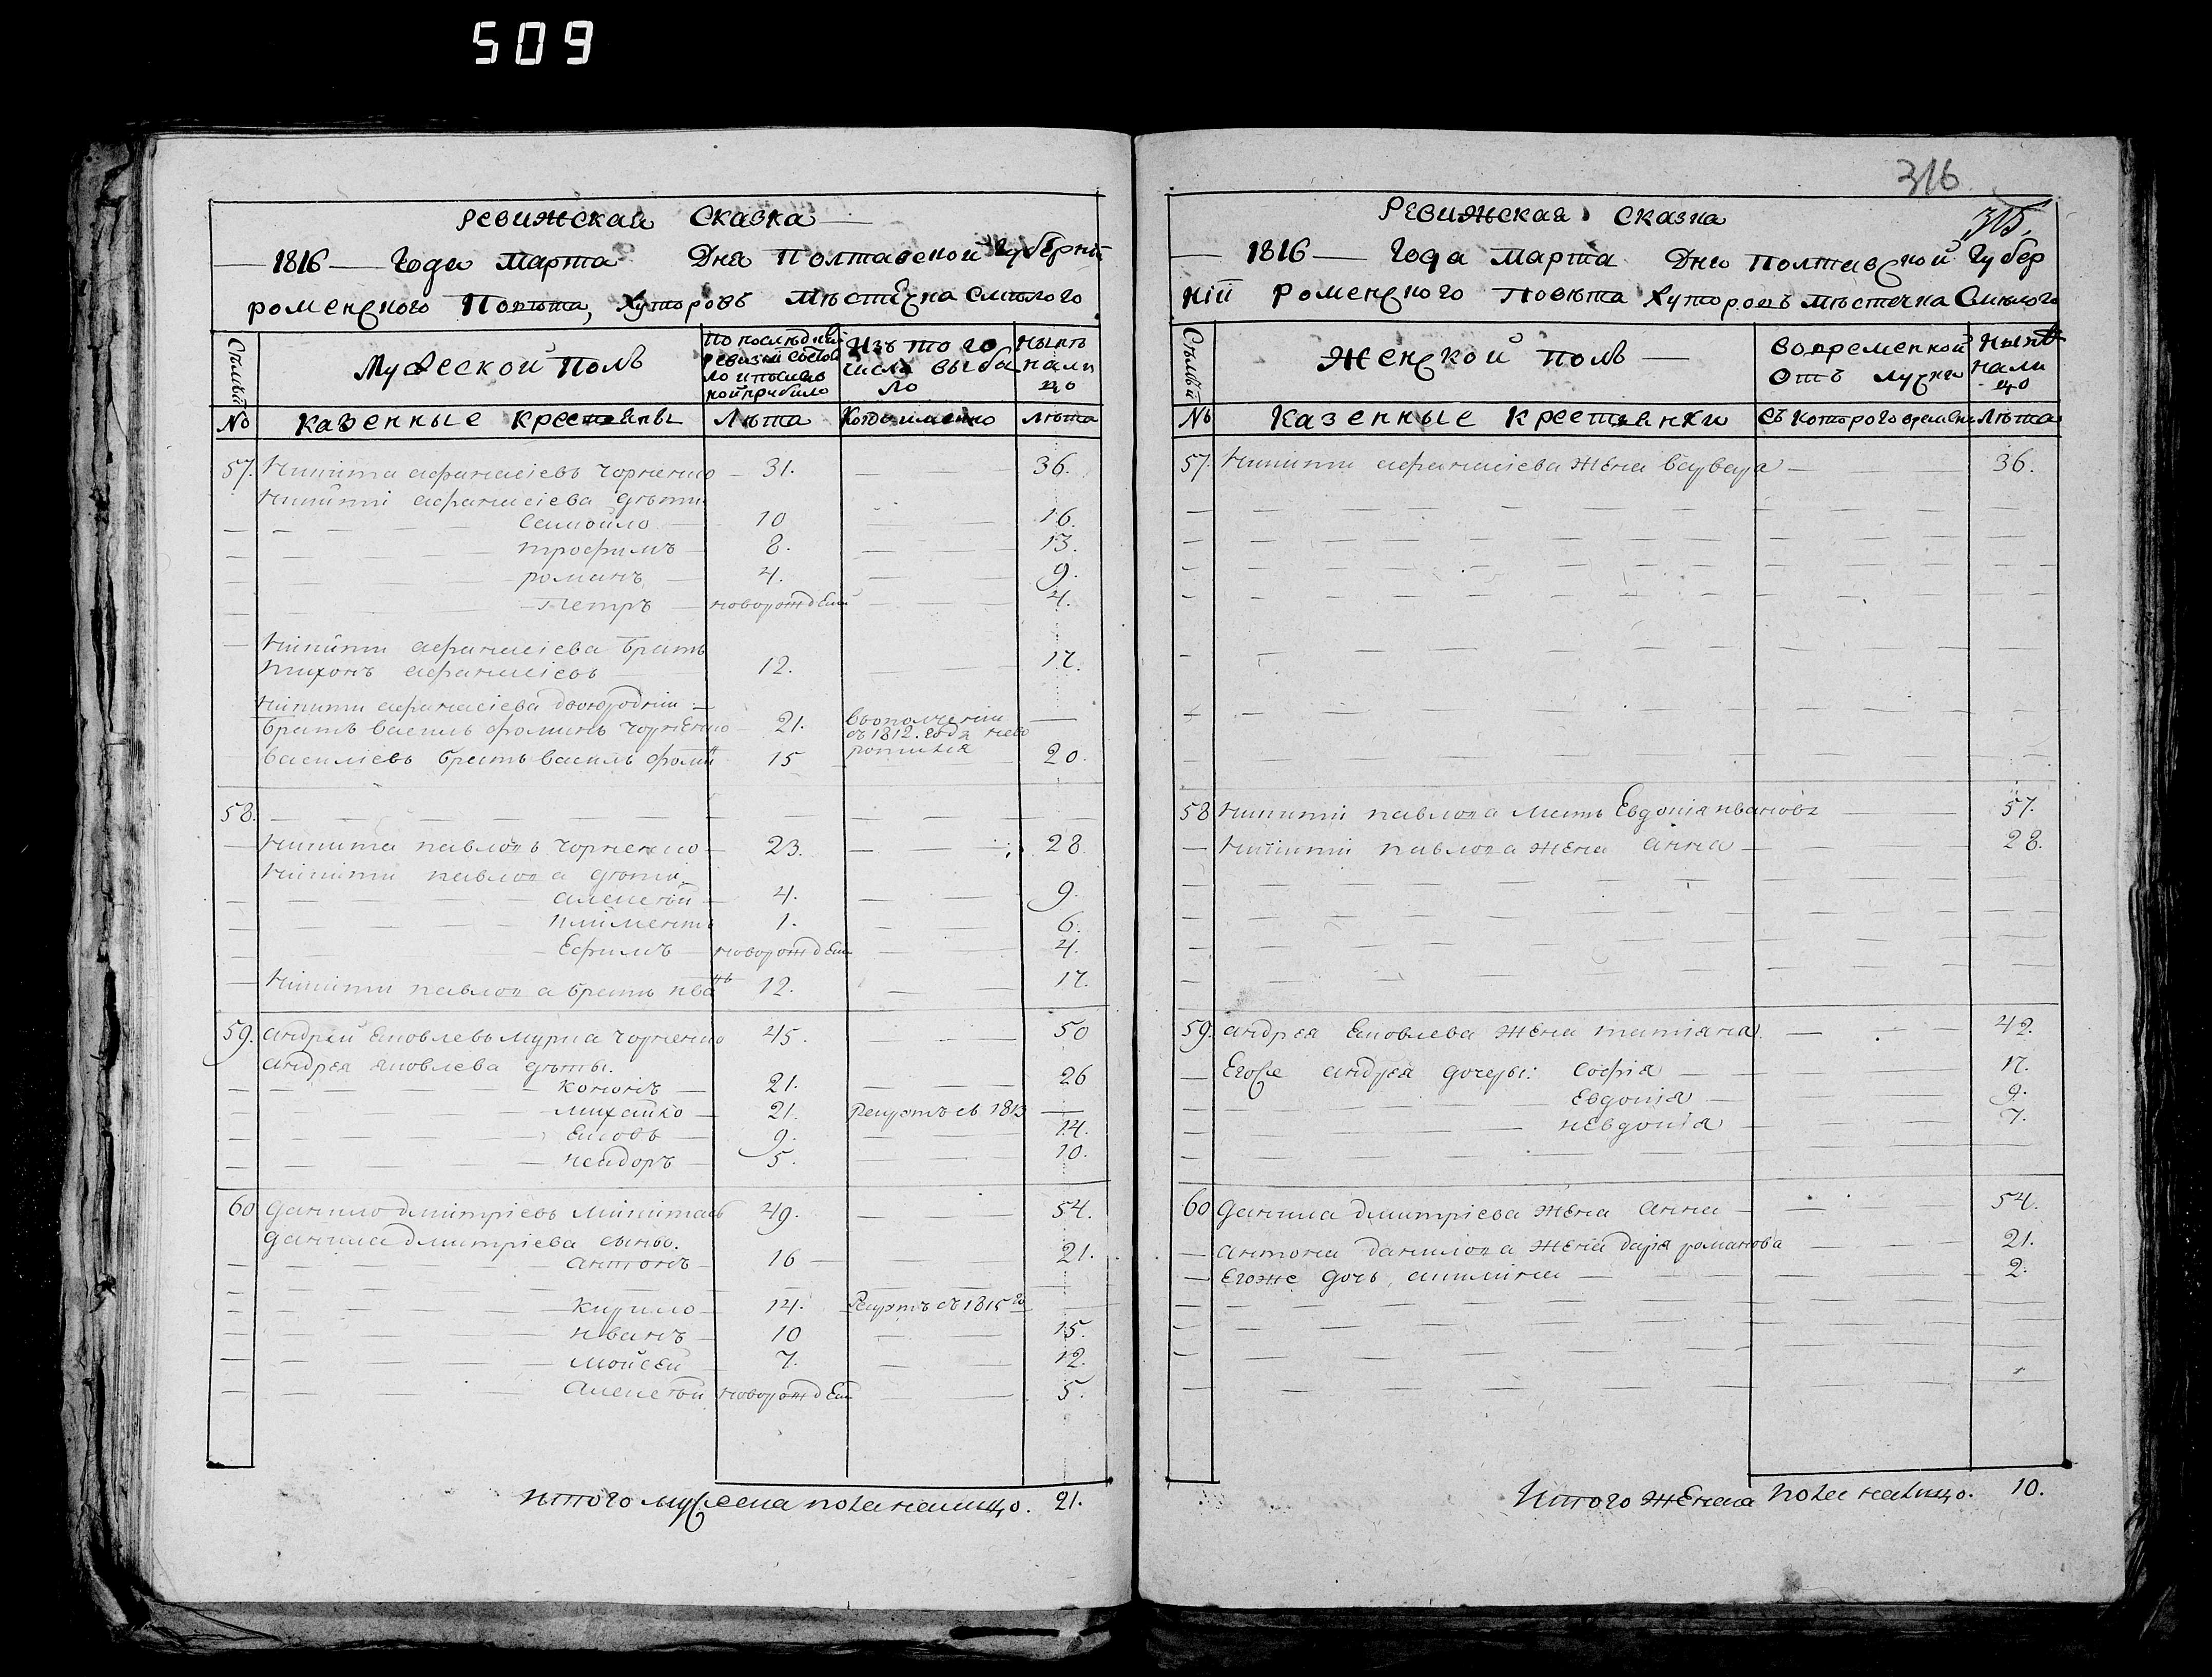 509
Ревижская Сказка
1816 Года Марта Дня Полтавской Губернiи
роменского Повѣта, Хуторовъ Мѣстечка Смѣлого
Мужеской Полъ
По последней ревизiи состояло и послѣ
Изъ того числа выбыло
Нынѣ налицо
№ Казенные Крестьяны Лѣта Когда именно Лѣта
57. Никита афанасiевъ Чорненко 31. 36.
Никити афанасiева дѣти
Самойло 10 16.
трофимъ 8. 13.
романъ 4. 9.
Петръ новорожден 4.
Никити афанасiева братъ
тихонъ афанасiевъ 12. 17.
Никити афанасiева двоюродни
братъ василь фоминъ Чорненко 21. вополченiи
съ 1812. года нево
ротился
василiевъ братъ василь фоминъ 15 20.
58.
Никита павловъ Чорненко 23. 28.
Никити павлова дѣти
алексѣй 4. 9.
климентъ 1. 6.
Ефимъ новорожден 4.
Никити павлова братъ иванъ 12. 17.
59. андрей Яковлевъ мурка Чорненко 45. 50
андрея яковлева дѣти.
кононъ 21. 26
михайко 21. Рекрутъ съ 1813
Яковъ 9. 14.
исидоръ 5. 10.
60 данило дмитрiевъ Микитась 49. 54.
данила дмитрiева сыны.
антонъ 16 21.
кирило 14. Рекрутъ съ 1815 го
иванъ 10 15.
мойсей 7. 12.
алексѣй новорожден 5.
Итого мужеска пола налицо. 21.
316
315.
Ревижская Сказка
1816 Года Марта Дня Полтавской Губер
нiи Роменского Повѣта Хуторовъ Мѣстечка Смѣлого
Женской Полъ
Вовременной Отълучки
Нынѣ налицо
№ Казенные Крестьянки Съ Которого времени Лѣта
57. Никити афанасiева жена варвара 36.
58 Никити павлова мать Евдокiя иванова 57.
Никити павлова жена анна 28.
59. андрея Яковлева жена татiяна 42.
Егоже андрея дочеры: софiя 17.
Евдокiя 9.
иевдокiя 7.
60 данила дмитрiева жена анна 54.
антона данилова жена даря романова 21.
Егоже дочь акилина 2.
Итого женска пола налицо. 10.